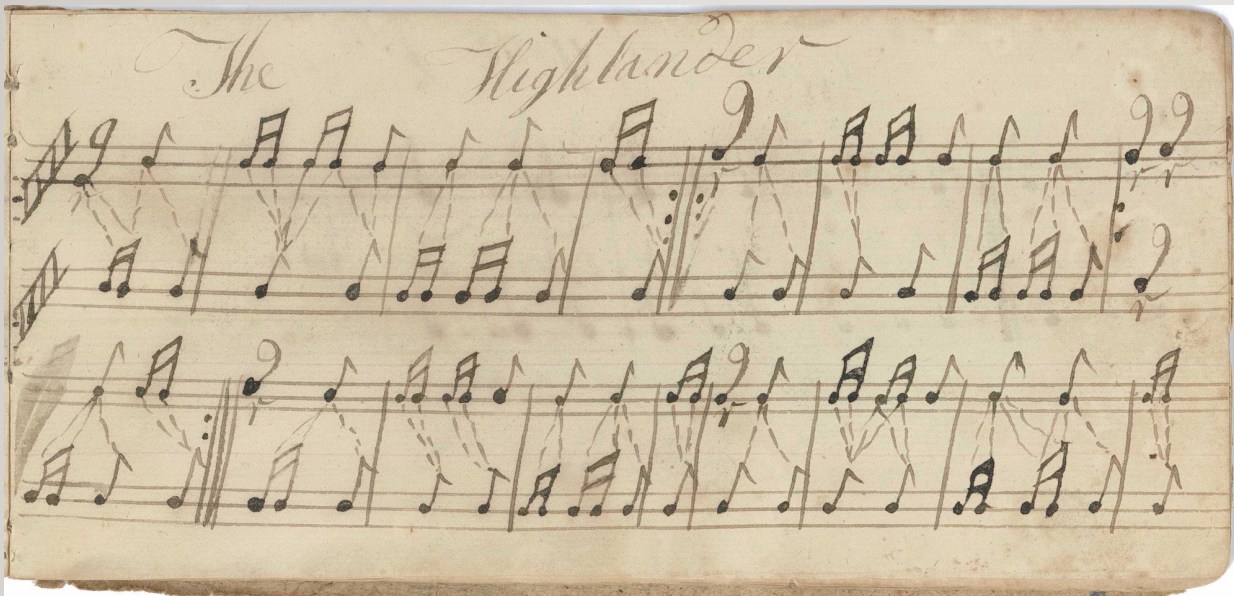 The Highlander